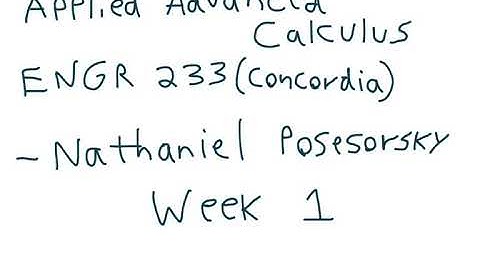 Applied Advanced
Calculus
ENGR 233 (Concordia)
- Nathaniel Posesorsky
Week 1